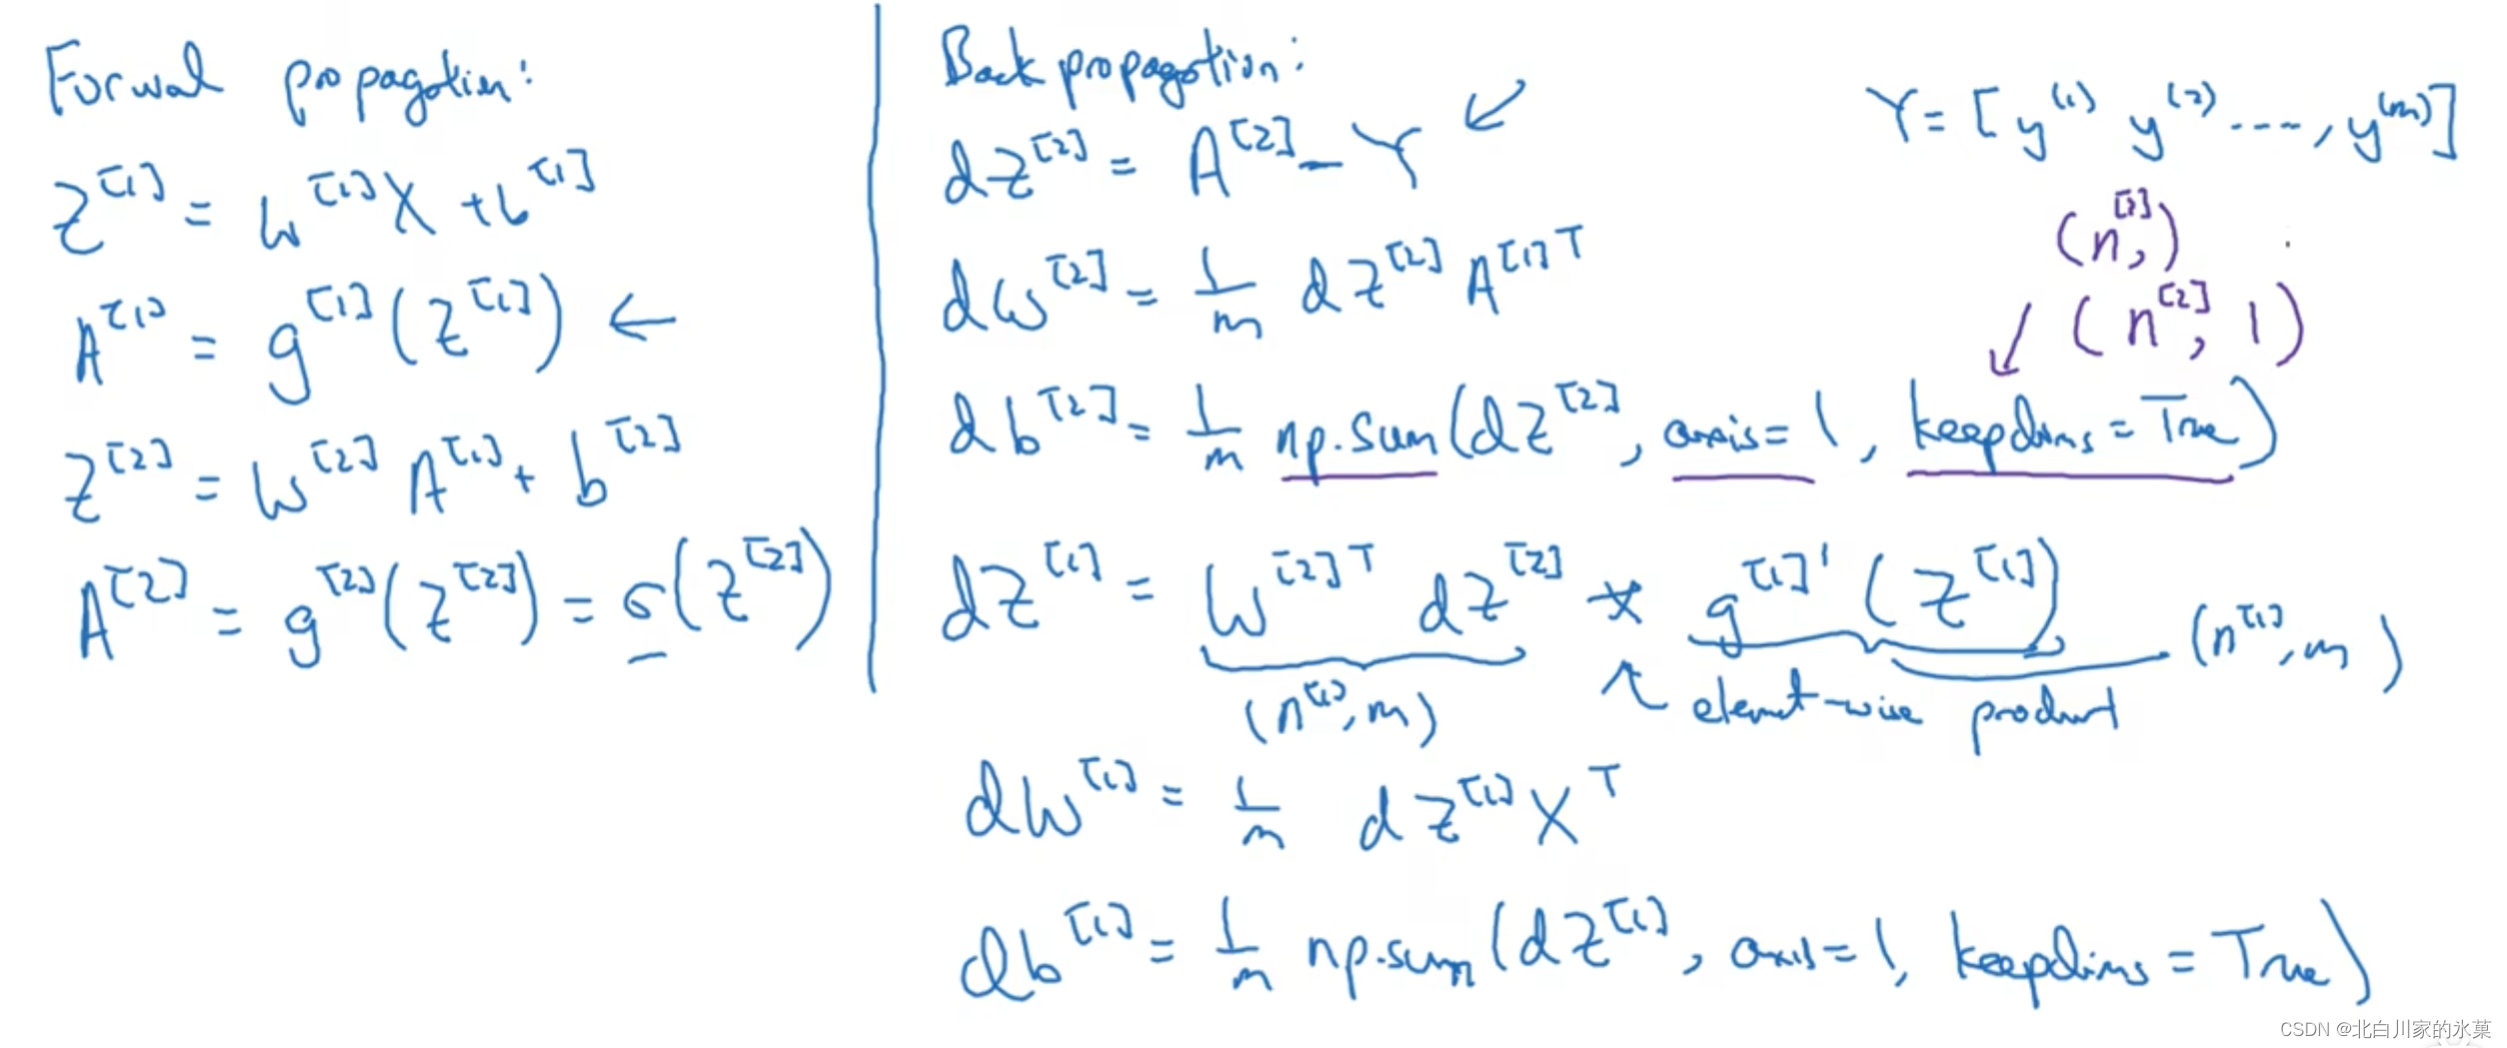 Forward propagation:
Z^[1] = W^[1] X + b^[1]
A^[1] = g^[1](Z^[1]) ←
Z^[2] = W^[2] A^[1] + b^[2]
A^[2] = g^[2](Z^[2]) = σ(Z^[2])
Back propagation:
dZ^[2] = A^[2] - Y ↙
Y = [y^(1) y^(2) ----, y^(m)]
dW^[2] = 1/m dZ^[2] A^[1]T
(n^[2],)
↙ (n^[2], 1)
db^[2] = 1/m np.sum(dZ^[2], axis=1, keepdims=True)
dZ^[1] = W^[2]T dZ^[2] * g^[1]'(Z^[1])
(n^[1], m)
↖ element-wise product
(n^[1], m)
dW^[1] = 1/m dZ^[1] X^T
db^[1] = 1/m np.sum(dZ^[1], axis=1, keepdims=True)
CSDN @北白川家的氷菓